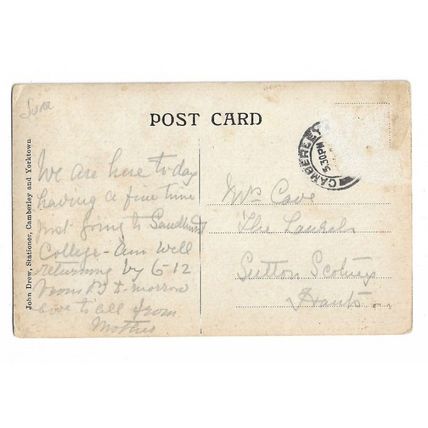 June
POST CARD
CAMBERLEY
5.30PM
John Drew, Stationer, Camberley and Yorktown
We are here to day
having a fine time
not going to Sandhurst
College - am well
returning by 6-12
from to-morrow
love to all from
Mother
Mrs Cave
The Laurels
Sutton Scotney
Hants